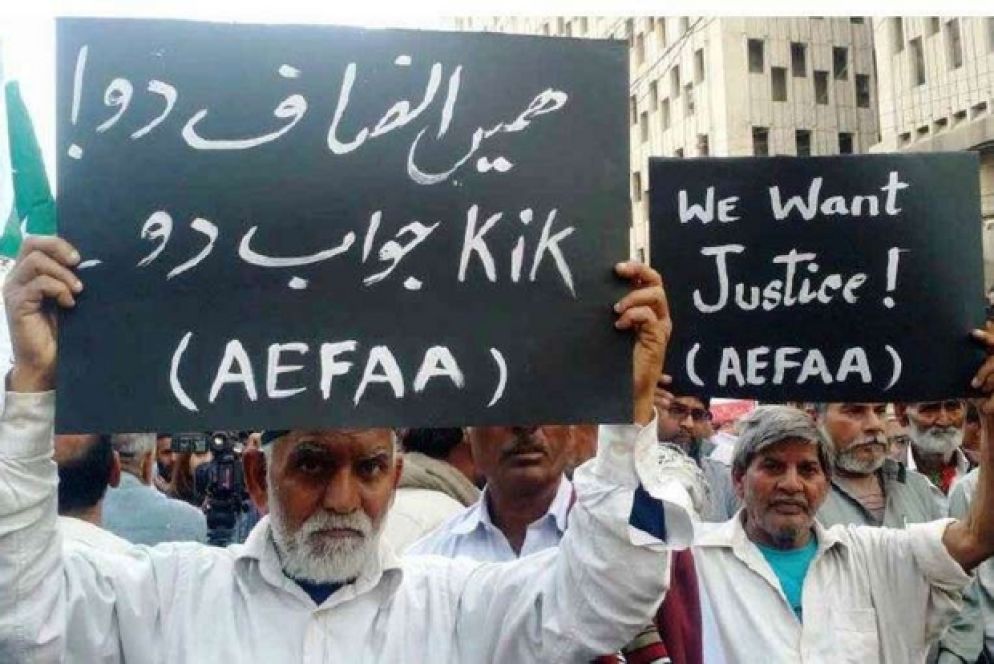 ھمیں انصاف دو!
Kik جواب دو۔
(AEFAA)
We Want
Justice!
(AEFAA)